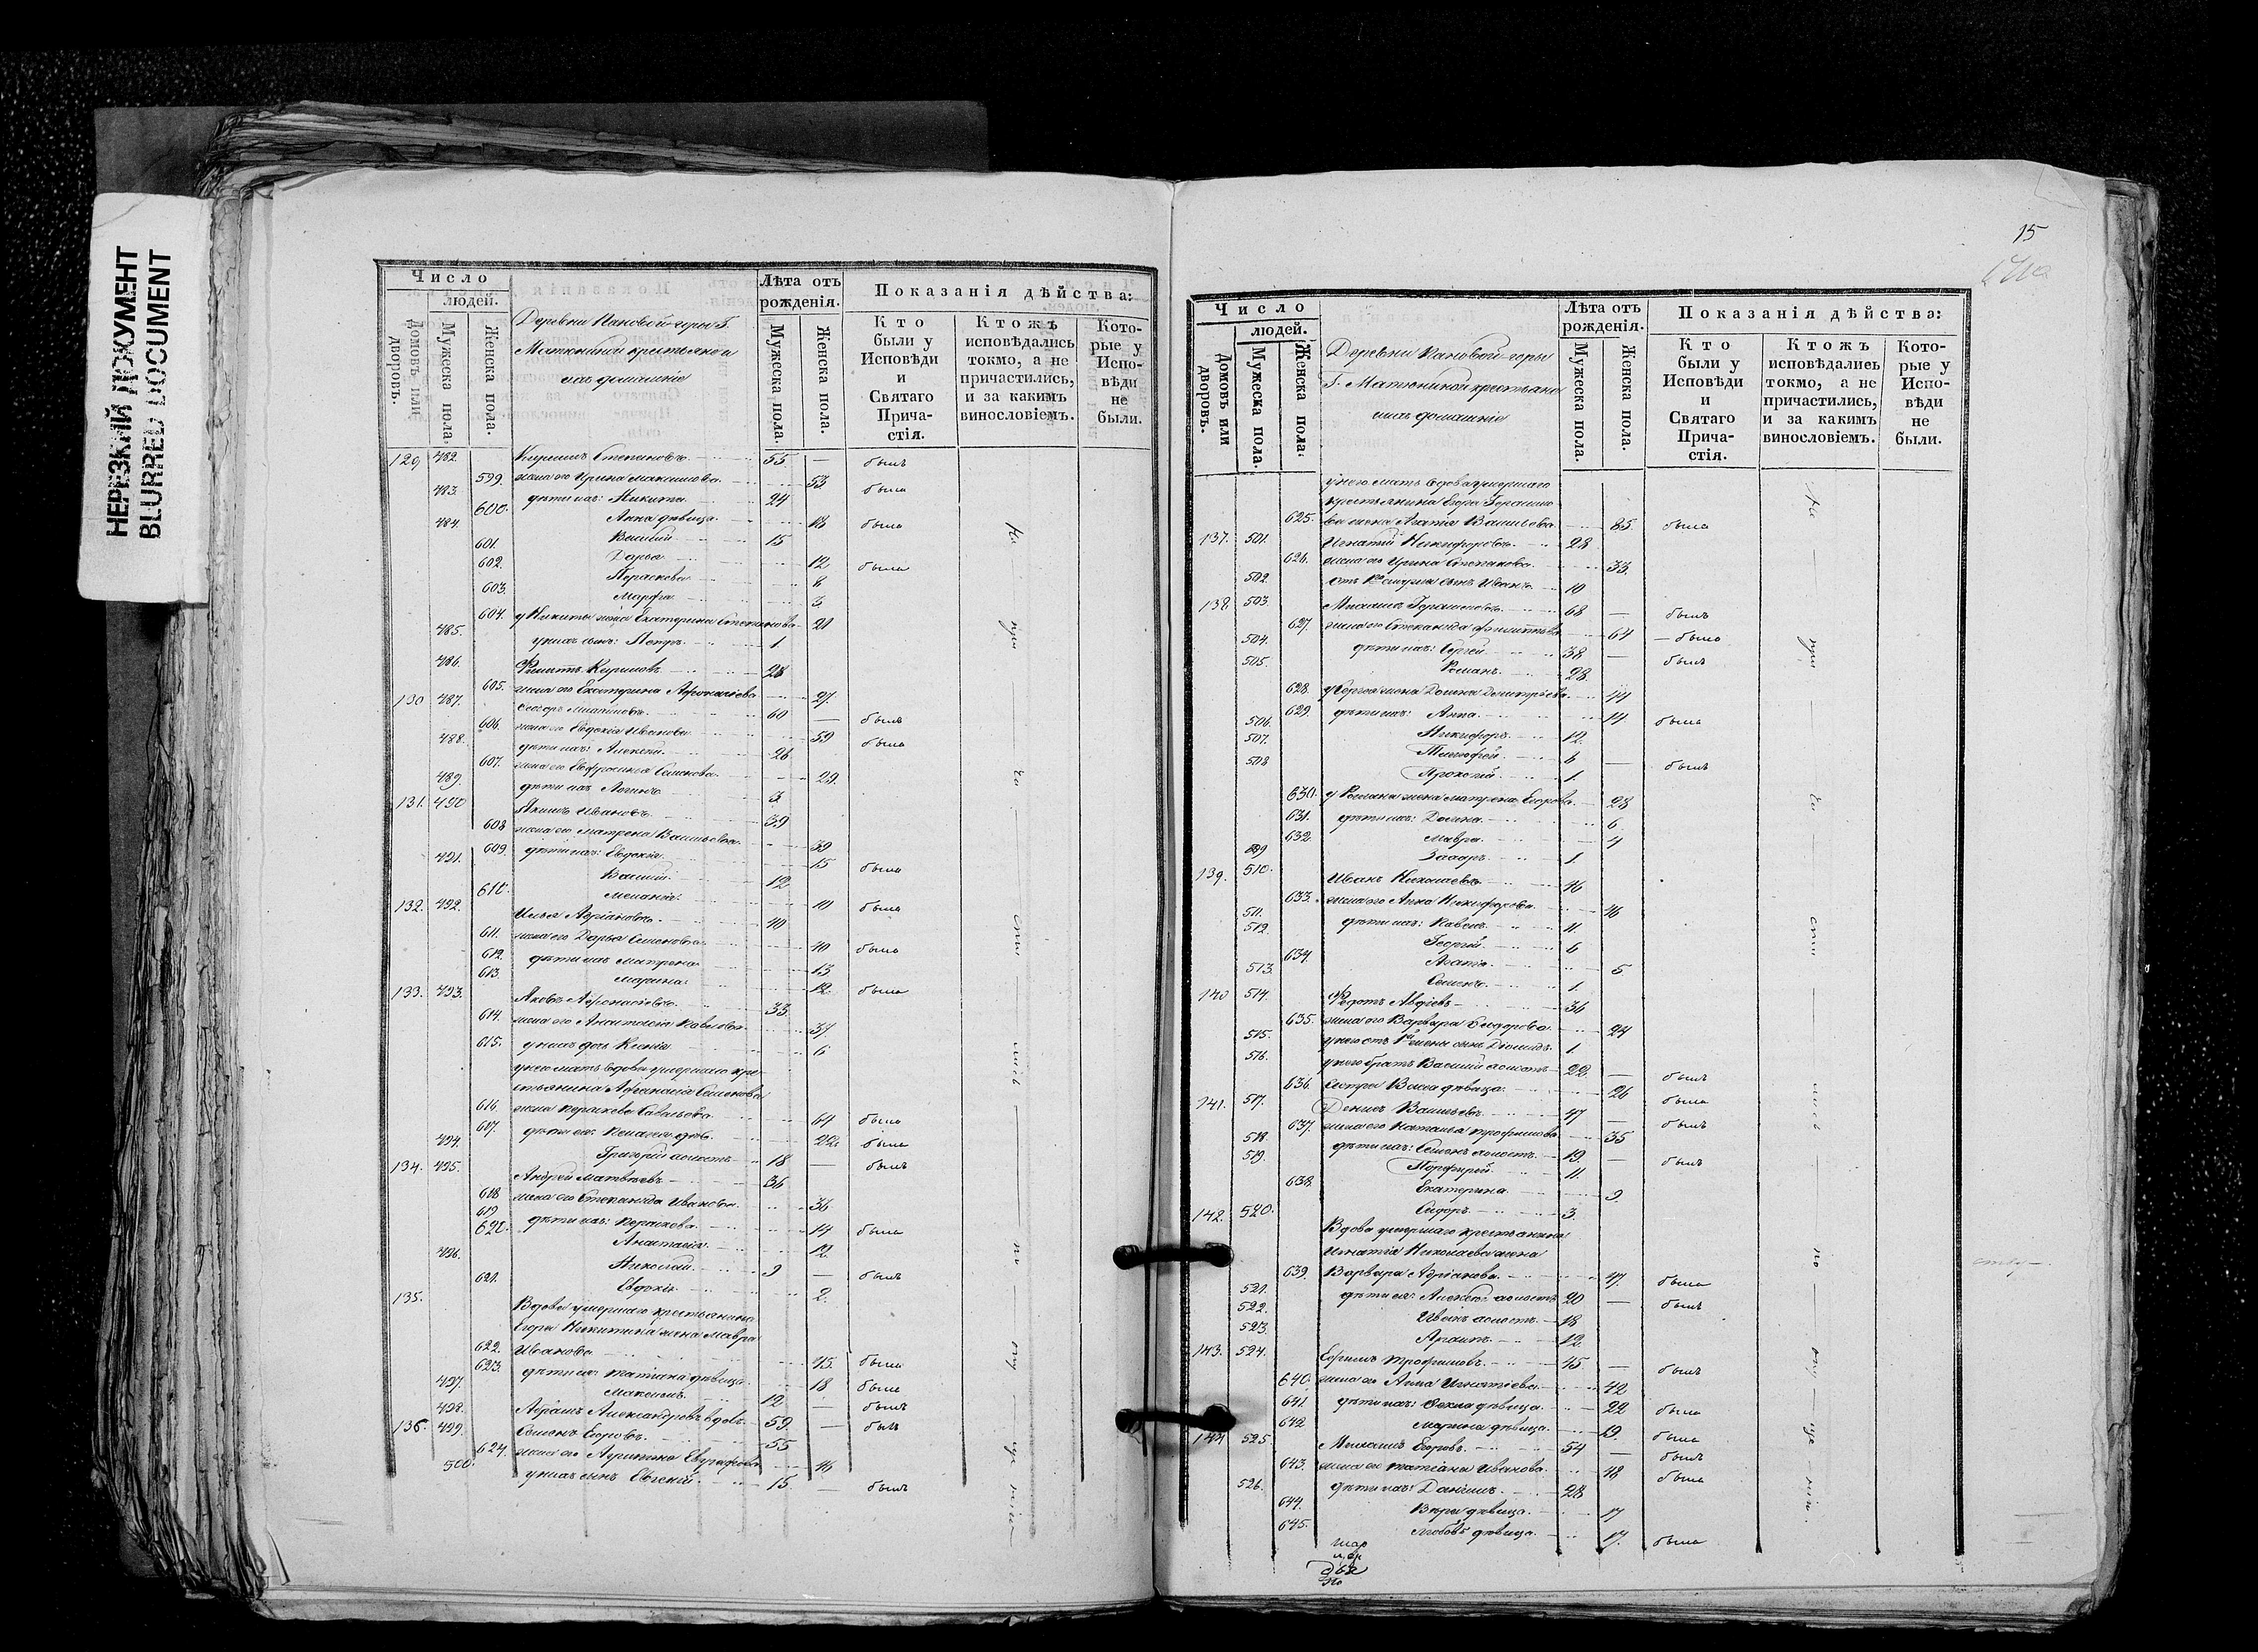 НЕРЕЗКИЙ ДОКУМЕНТ
BLURRED DOCUMENT
Число
людей.
Домовъ или дворовъ.
Мужеска пола.
Женска пола.
Деревни Пановой-горы Г.
Матюниной крестьяне и
ихъ домашніе
Лѣта отъ рожденія.
Мужеска пола.
Женска пола.
Показанія дѣйства:
Кто были у Исповѣди и Святаго Причастія.
Ктожъ исповѣдались токмо, а не причастились, и за какимъ винословіемъ.
Которые у Исповѣди не были.
129 482. Кириллъ Степановъ 55 — былъ
599. жена его Ирина Максимова 53 была
483. дѣти ихъ: Никита 24
600. Анна дѣвица 18 была
484. Василій 15
601. Дарья 12 была
602. Параскева 6
603. Марѳа 3
604. у Никиты жена Екатерина Степанова 21
485. у нихъ сынъ: Петръ 1
486. Филиппъ Кириловъ 28
605. жена его Екатерина Афонасіева 27.
130 487. 60 — былъ
606. жена его Евдокія Иванова 59 была
488. дѣти ихъ: Алексѣй 26
607. жена его Евфросинія Семенова 29
489. дѣти ихъ Логинъ 3
131. 490 Іакимъ Ивановъ 39
608 жена его Матрена Васильева 39
609. дѣти ихъ: Евдокія 15 была
491. Василій 12
610. Меланія 10 была
132. 492. Илья Адріановъ 40
611. жена его Дарья Семенова 40 была
612. дѣти ихъ Матрена 13
613. Марина 12 была
133. 493. Яковъ Афонасіевъ 33
614. жена его Анастасія Павлова 31
615. у нихъ дочь Ксенія 6
у него мать вдова умершаго кре-
стьянина Афанасія Семенова
616. жена Параскева Савельева 61 была
617. дѣти ея: Пелагея дѣв. 22 была
494. Григорій холостъ 18 — былъ
134. 495. Андрей Матвѣевъ 36
618 жена его Степанида Иванова 36
619 дѣти ихъ: Параскева 14 была
620. Анастасія 12
496. Николай 9 — былъ
621. Евдокія 2.
135. Вдова умершаго крестьянина
Егора Никитина жена Мавра
622. Иванова 45. была
623. дѣти ея: Татіана дѣвица 18 была
497. Максимъ 12 — былъ
498. Абрамъ Александровъ вдовъ 59. — былъ
136. 499. Семенъ Егоровъ 55
624. жена его Агрипина Евграфова 46
500. у нихъ сынъ Евгеній 15 — былъ
15
Число
людей.
Домовъ или дворовъ.
Мужеска пола.
Женска пола.
Деревни Пановой-горы
Г. Матюниной крестьяне и
ихъ домашніе
Лѣта отъ рожденія.
Мужеска пола.
Женска пола.
Показанія дѣйства:
Кто были у Исповѣди и Святаго Причастія.
Ктожъ исповѣдались токмо, а не причастились, и за какимъ винословіемъ.
Которые у Исповѣди не были.
у него мать вдова умершаго
крестьянина Егора Герасимо-
625. ва жена Агапія Васильева 85 была
137. 501. Игнатій Никифоровъ 28
626. жена его Ирина Степанова 33.
502. сынъ Иванъ 10
138 503. Михаилъ Герасимовъ 68 — былъ
627. жена его Степанида Филиппова 64 — была
504. дѣти ихъ: Сергей 38 — былъ
505. Романъ 28
628. у Сергея жена Домна Димитріева 44
629. дѣти ихъ: Анна 14 была
506. Никифоръ 12.
507. Тимофей 6 — былъ
508 Прокопій 1.
630. у Романа жена Матрена Егорова 28
631. дѣти ихъ: Домна 6
632. Мавра 4
509 Захаръ 1.
139. 510. Иванъ Николаевъ 46
633. жена его Анна Никифорова 46
511. дѣти ихъ: Павелъ 11
512. Георгій 6
634. Агапія 5
513. Семенъ 1.
140 514. Федотъ Авдіевъ 36
635. жена его Варвара Сидорова 24
515. у него отъ 1й жены сынъ Діомидъ 1.
516. у него братъ Василій холостъ 22. — былъ
636. сестра дѣвица 26 была
141. 517. Денисъ Васильевъ 47 — былъ
637. жена его Наталья Трофимова 35
518. дѣти ихъ: Семенъ холостъ 19. — былъ
519. Порфирій 11.
638. Екатерина 9
142. 520. Сидоръ 3.
Вдова умершаго крестьянина
Игнатія Николаева жена
639. Варвара Адріанова 47 была
521. дѣти ея: Алексѣй холостъ 20 — былъ
522. Иванъ холостъ 18
523. Архипъ 12.
143. 524. Ефимъ Трофимовъ 45 — былъ
640. жена его Анна Игнатіева 42
641 дѣти ихъ: Фекла дѣвица 22 была
642 Марина дѣвица 19. была
144 525. Михаилъ Егоровъ 54 — былъ
643. жена его Татіана Иванова 48 была
526. дѣти ихъ: Даніилъ 28
644. Вѣра дѣвица 17
645. Любовь дѣвица 17. была